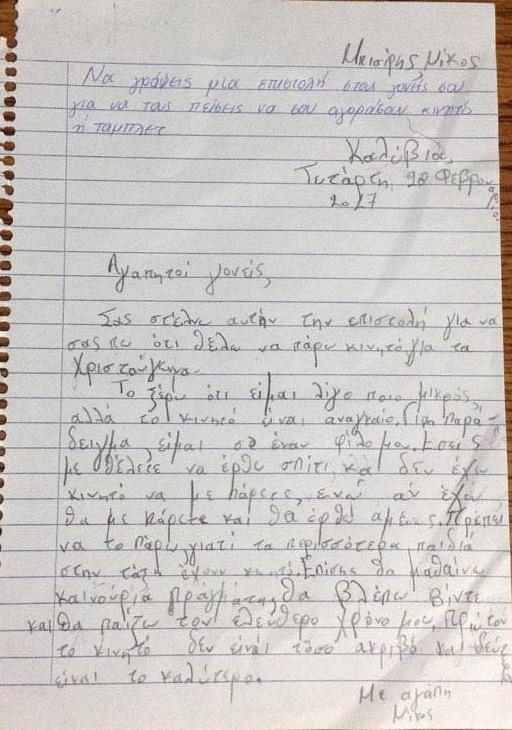 Μπισρής Νίκος
Να γράψεις μια επιστολή στους γονείς σου
για να τους πείσεις να σου αγοράσουν κινητό
ή ταμπλετ
Καλύβια,
Τετάρτη, 28 Φεβρουαρίου
2017
Αγαπητοί γονείς,
Σας στέλνω αυτήν την επιστολή για να
σας πω ότι θέλω να πάρω κινητό για τα
Χριστούγεννα.
Το ξέρω ότι είμαι λίγο ποιο μικρός,
αλλά το κινητό είναι αναγκαίο. Για παρά-
δειγμα, είμαι σε έναν φίλο μου, εσείς
με θέλετε να έρθω σπίτι κα δεν έχω
κινητό να με πάρεις, ενώ αν έχω
θα με πάρετε και θα έρθω αμέσως. Πρέπει
να το πάρω γιατί τα περισσότερα παιδιά
στην τάξη έχουν κινητό. Επίσης θα μαθαίνω
καινούρια πράγματα, θα βλέπω βίντε
και θα παίζω τον ελεύθερο χρόνο μου. Πρώτον
το κινητό δεν είναι τόσο ακριβό και δεύτ
είναι το καλύτερο.
Με αγάπη
Νίκος